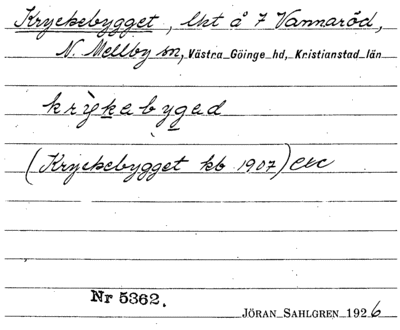 Kryckebygget, lht å 7 Vannaröd,
N. Mellby sn, Västra Göinge hd, Kristianstad län
krỳkabyged
(Kryckebygget kb 1907) exc
Nr 5362.
JÖRAN SAHLGREN 1926